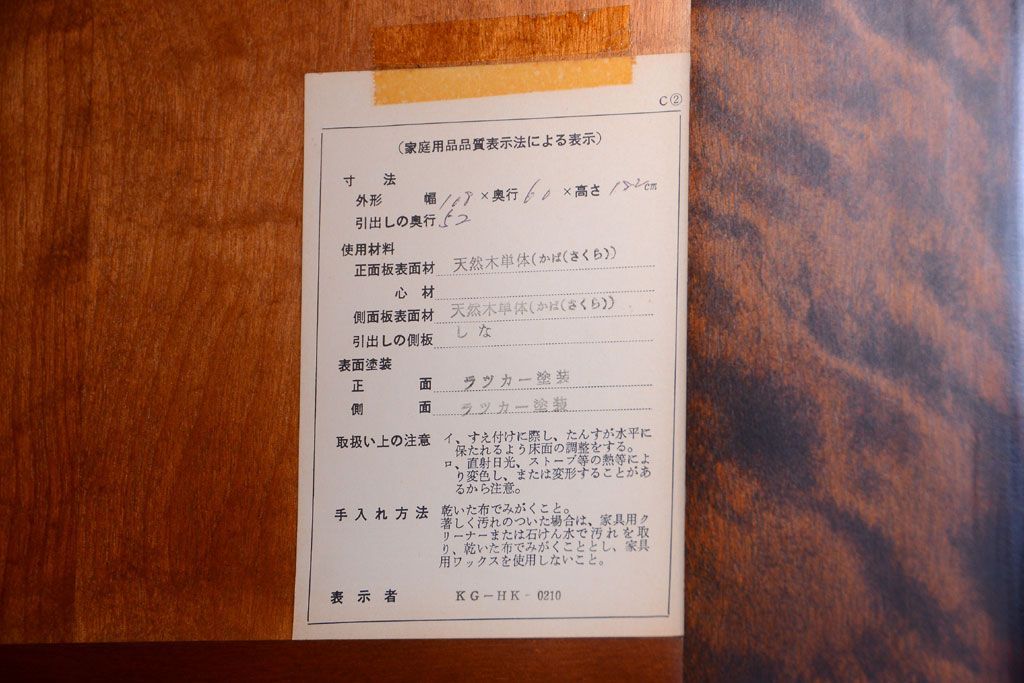 C②
(家庭用品品質表示法による表示)
寸 法
外形 幅108×奥行60×高さ182cm
引出しの奥行52
使用材料
正面板表面材 天然木単体(かば(さくら))
心材
側面板表面材 天然木単体(かば(さくら))
引出しの側板 しな
表面塗装
正 面 ラツカー塗装
側 面 ラツカー塗装
取扱い上の注意 イ、すえ付けに際し、たんすが水平に
保たれるよう床面の調整をする。
ロ、直射日光、ストーブ等の熱等によ
り変色し、または変形することがあ
るから注意。
手入れ方法 乾いた布でみがくこと。
著しく汚れのついた場合は、家具用ク
リーナーまたは石けん水で汚れを取
り、乾いた布でみがくこととし、家具
用ワックスを使用しないこと。
表示者 KG-HK-0210